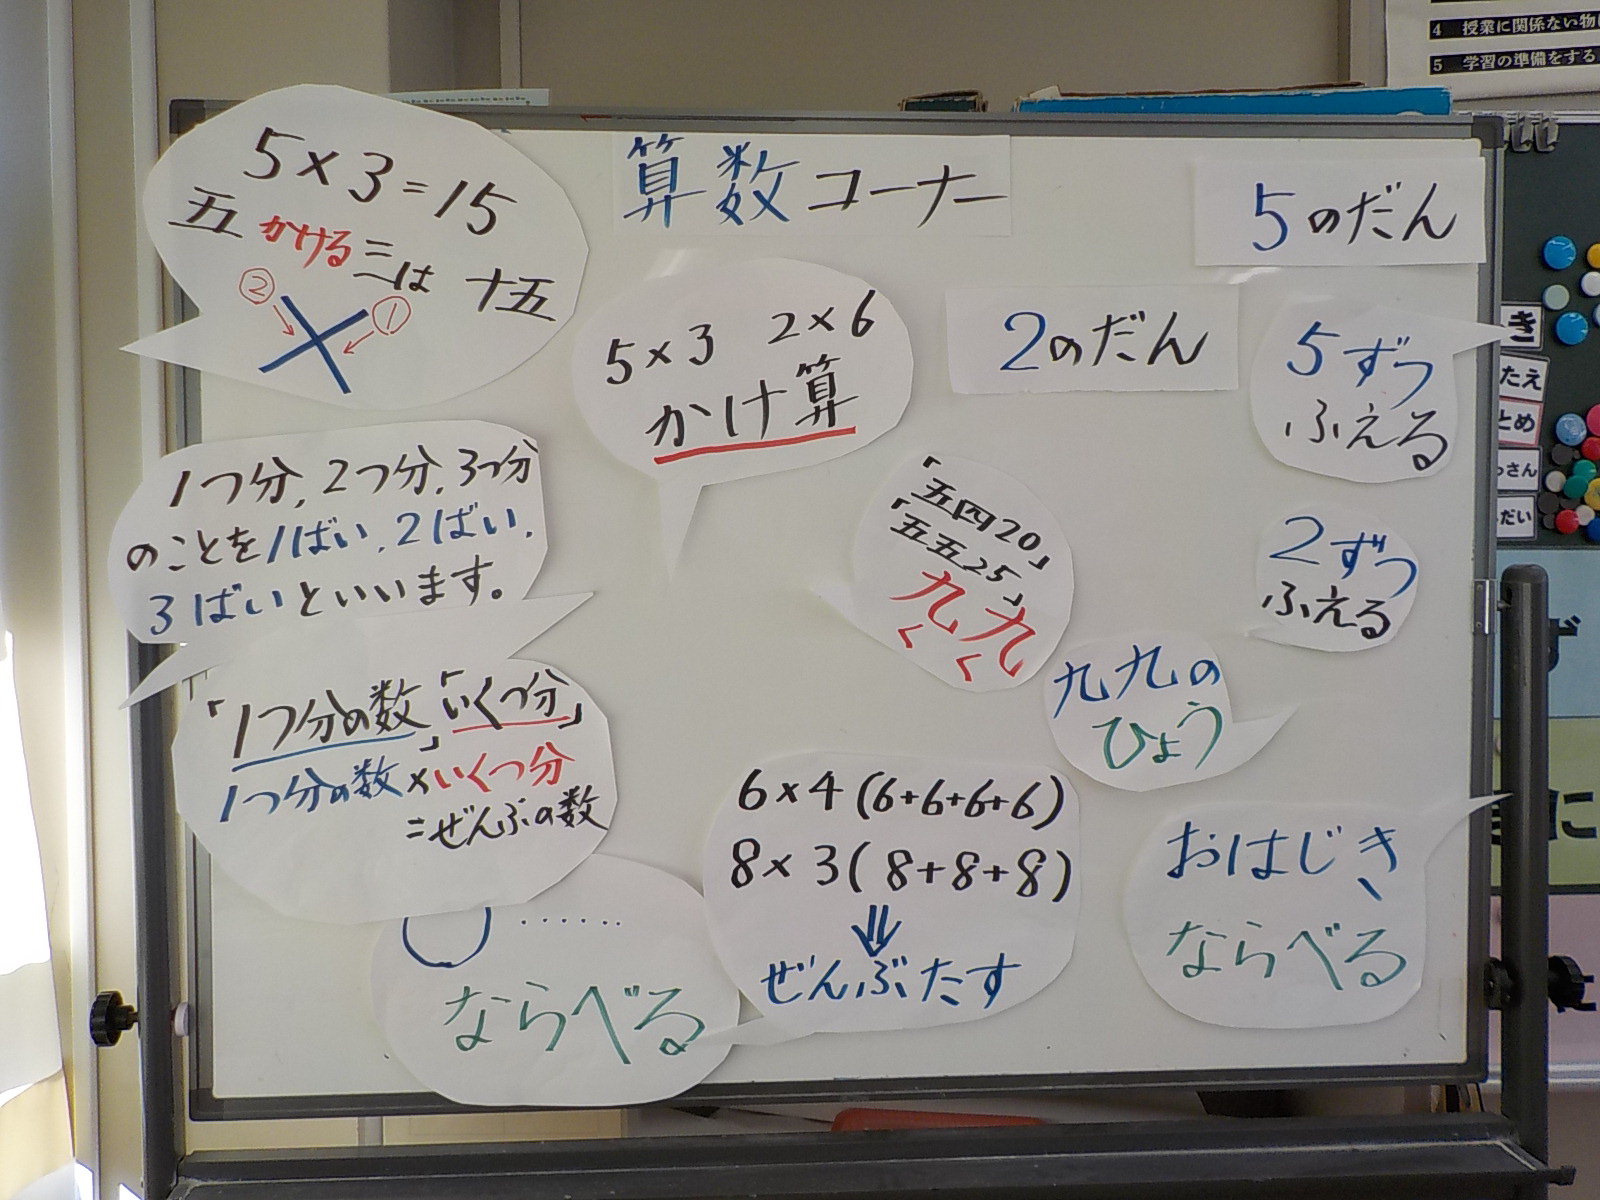 4 授業に関係ない物
5 学習の準備をする
算数コーナー
5×3=15
五かける三は 十五
② ①
5のだん
2のだん
5×3 2×6
かけ算
5ずつ
ふえる
1つ分,2つ分,3つ分
のことを1ばい,2ばい,
3ばいといいます。
「五四20」
「五五25」
九九
くく
2ずつ
ふえる
九九の
ひょう
「1つ分の数」「いくつ分」
1つ分の数×いくつ分
=ぜんぶの数
6×4(6+6+6+6)
8×3(8+8+8)
⇓
ぜんぶたす
おはじき、
ならべる
○ ‥‥‥
ならべる
き
たえ
とめ
さん
だい
ず
に
に